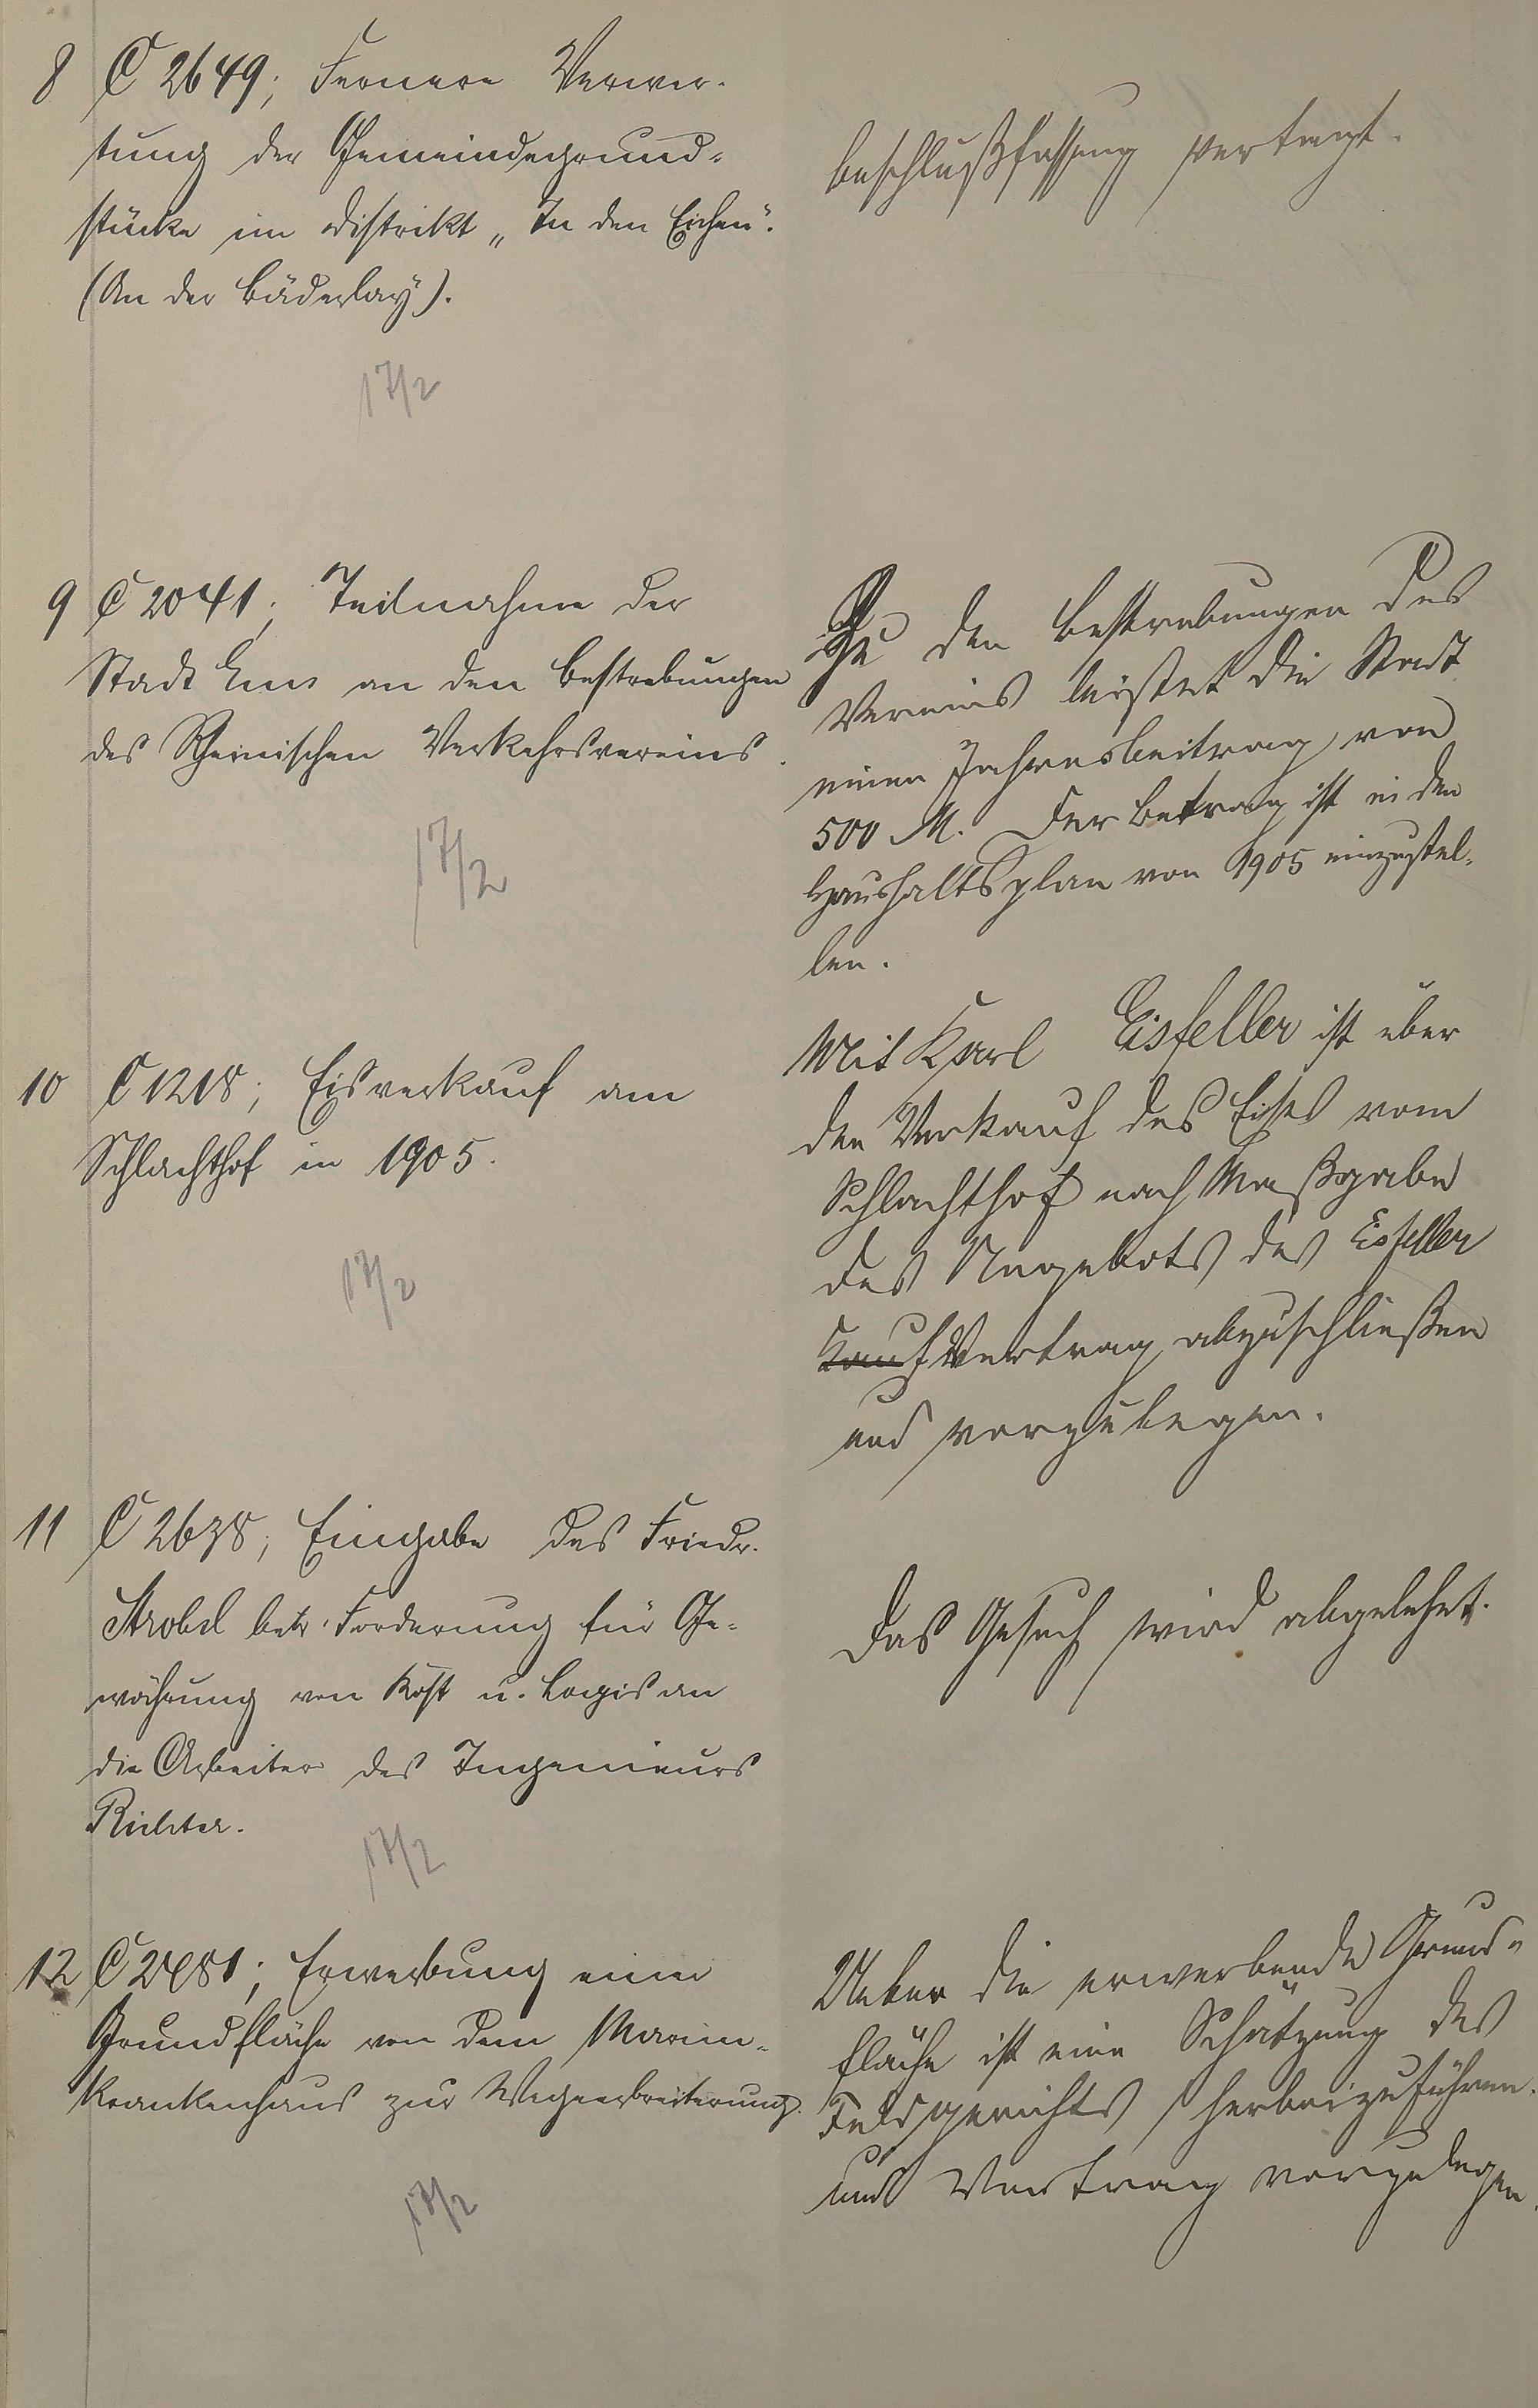 8 C 2649; Fernere Verwer-
tung der Gemeindegrund-
stücke im Distrikt „In den Eichen".
(An der Bäderlay").
17/2
Beschlußfassung vertagt.
9 C 2041; Teilnahme der
Stadt Ems an den Bestrebungen
des Rheinischen Verkehrsvereins.
17/2
Zu den Bestrebungen des
Vereins leistet die Stadt
einen Jahresbeitrag von
500 M. Der Betrag ist in den
Haushaltsplan von 1905 einzustel-
len.
10 C 1218; Eisverkauf am
Schlachthof in 1905.
17/2
Mit Karl Eisfeller ist über
den Verkauf des Eises vom
Schlachthof nach Maßgabe
des Angebots des Eisfeller
Kauf Vertrag abzuschließen
und vorzulegen.
11 C 2638; Eingabe des Friedr.
Strobel betr. Forderung für Ge-
währung von Kost u. Logis an
die Arbeiter des Ingenieurs
Richter.
17/2
Das Gesuch wird abgelehnt.
12 C 2481; Erwerbung einer
Grundfläche von dem Marien-
krankenhaus zur Wegeverbreiterung.
17/2
Ueber die erwerbende Grund-
fläche ist eine Schätzung des
Feldgerichts herbeizuführen
und Vertrag vorzulegen.